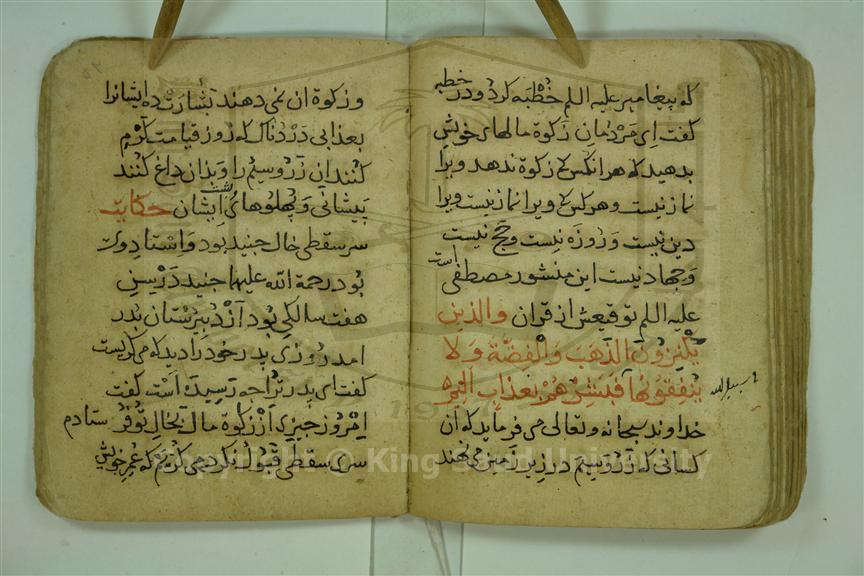 که پیغامبر علیه السلم خطبه کرد و در خطبه
کفت ای مردمان زکوة مالهای خویش
بدهید که هر انکس که زکوة ندهد ویرا
نماز نیست و هر کس که ویرا نماز نیست ویرا
دین نیست و روزه نیست و حج نیست
و جهاد نیست این منشور مصطفی است
علیه السلم توقیعش از قران والذین
یکنزون الذهب والفضة ولا
ینفقونها فی سبیل الله فبشرهم بعذاب الیم
خداوند سبحانه وتعالی می فرماید که آن
کسانی که زر و سیم در زیر زمین می نهند
و زکوة ان نمی دهند بشارت ده ایشانرا
بعذابی دردناک که روز قیامت کرم
کنند ان زر و سیم را و بدان داغ کنند
پیشانی و پهلوهای و پشت ایشان حکایت
سری سقطی خال جنید بود و استاد وی
بود رحمة الله علیهما جنید در سن
هفت سالکی بود از دبیرستان بدر
امد روزی پدر خود را دید که می کریست
کفت ای پدر ترا چه رسیده است کفت
امروز چیزی از زکوة مال بخال تو فرستادم
سری سقطی قبول نکرد می کریم که عمر خویش
Copyright © King Saud University